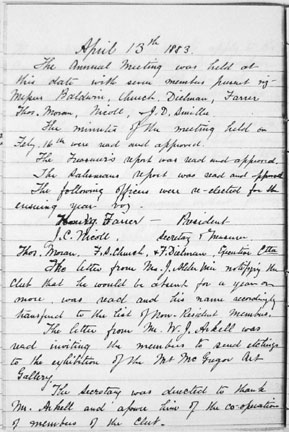 April 13th 1883.
The Annual Meeting was held at
this date with seven members present viz
Messrs Baldwin, Church, Dielman, Farrer
Thos. Moran, Nicoll, & J.D. Smillie
The minutes of the meeting held on
Feby. 16th were read and approved.
The Treasurer's report was read and approved.
The Salesmans report was read and approved
The following officers were re-elected for the
ensuing year viz.
Henry Farrer — President
J.C. Nicoll, Secretary & Treasurer
Thos. Moran, F.S. Church, & F. Dielman, Executive Com
The letter from Mr. J. notifying the
Club that he would be absent for a year or
more was read and his name accordingly
transferred to the List of Non-Resident Members.
The letter from Mr. W. J. Arkell was
read inviting the members to send etchings
to the exhibition of the Mt McGregor Art
Gallery.
The Secretary was directed to thank
Mr. Arkell and assure him of the co-operation
of members of the Club.